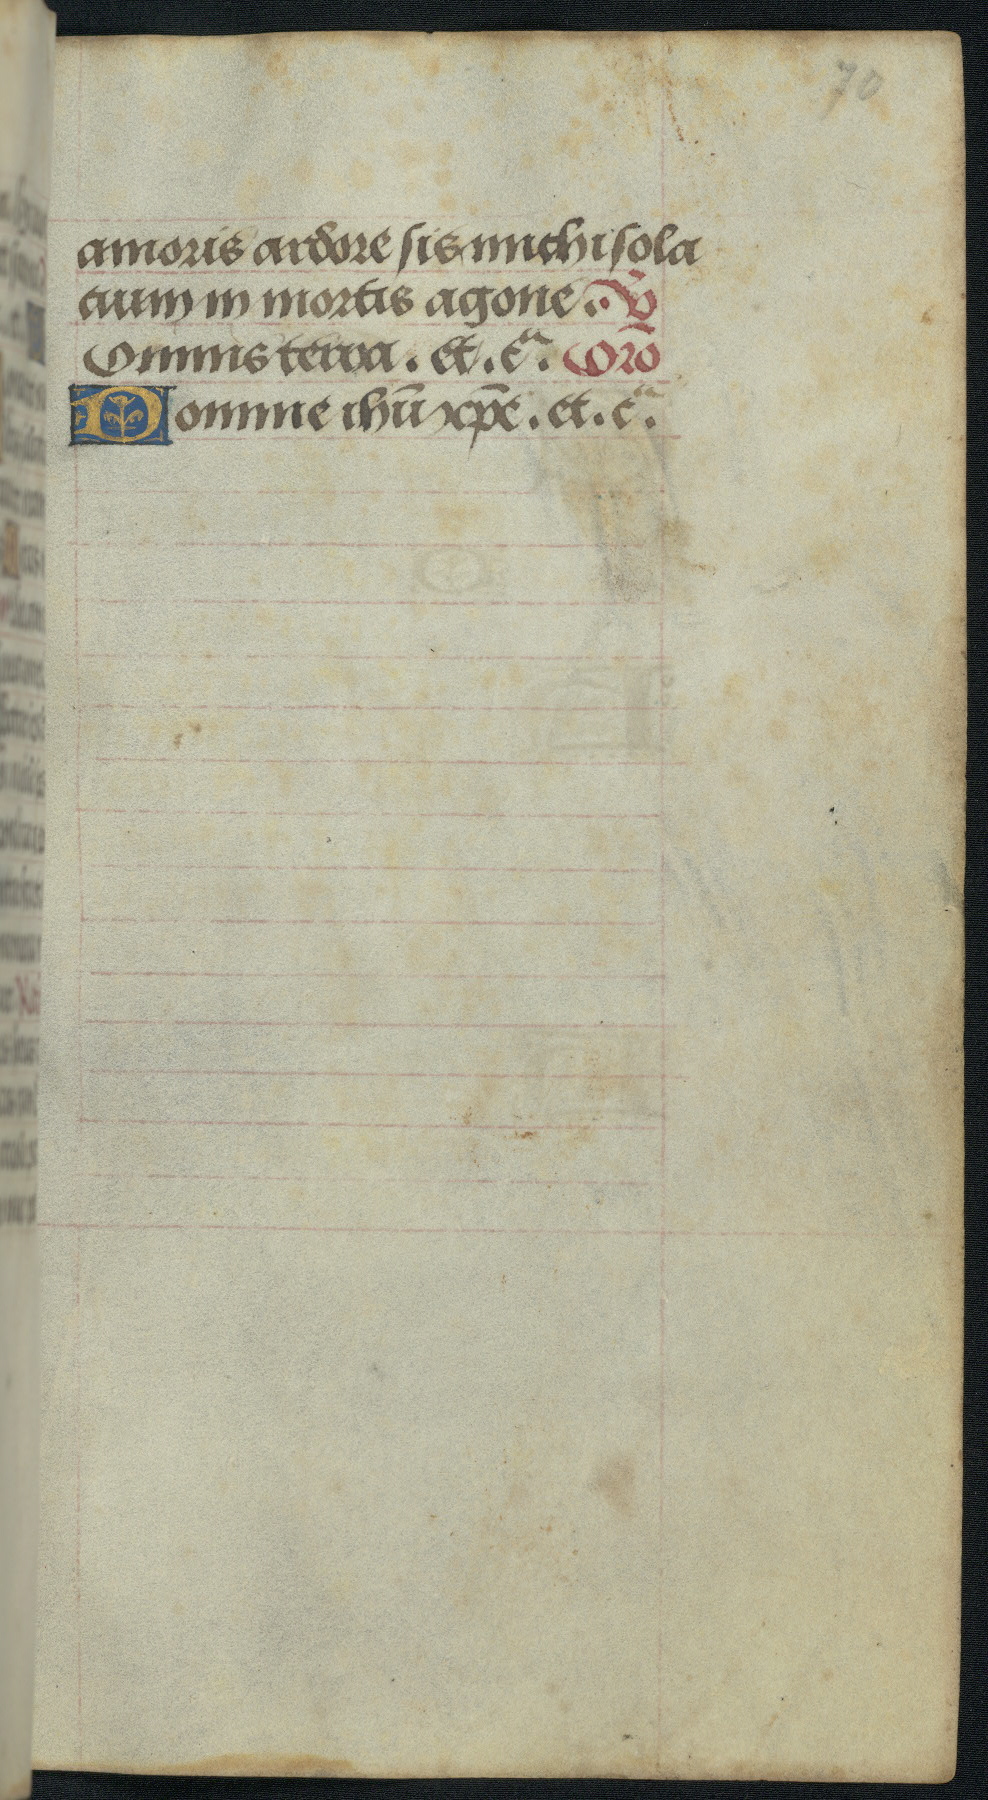 70
amoris ardore sis michi sola
cium in mortis agone. ℣
Omnis terra. et. cᵃ. Oro
Domine ihū xp̄e. et. cᵃ.